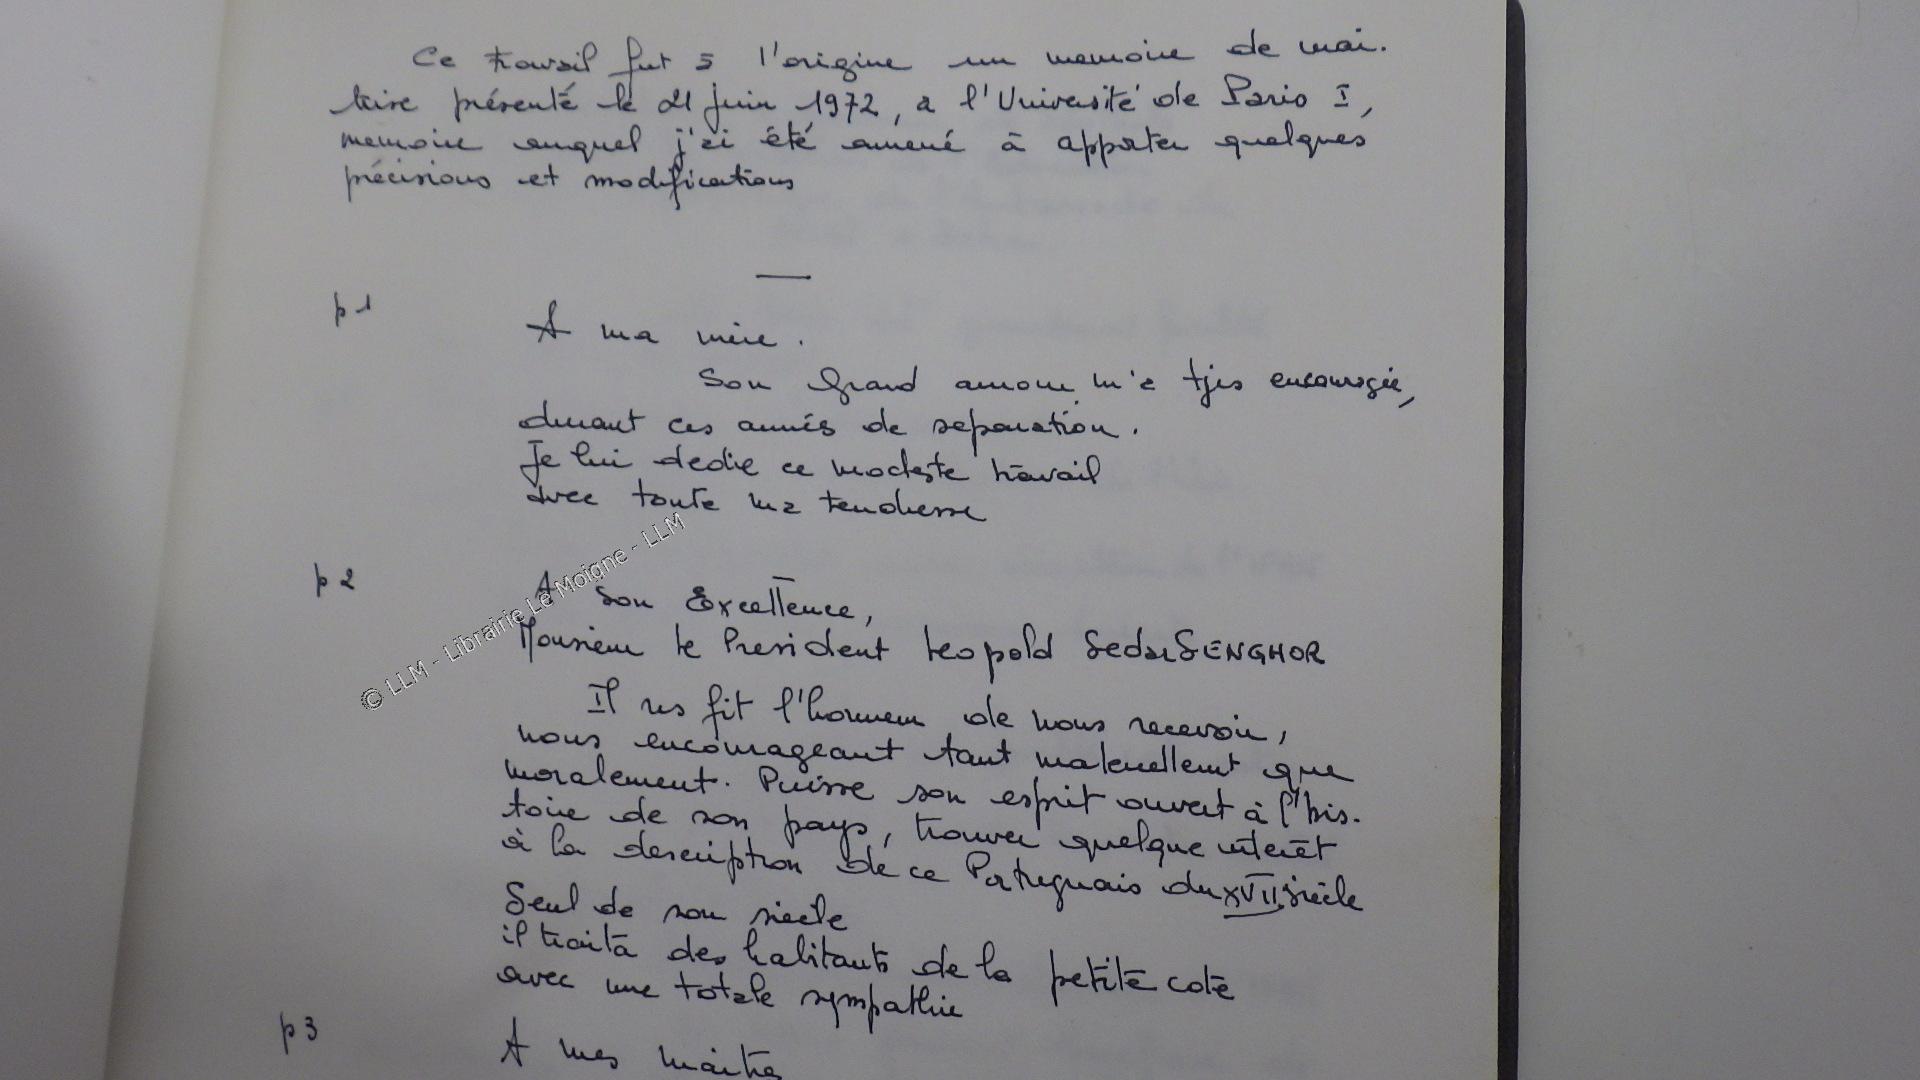 Ce travail fut à l'origine un memoire de mai.
trise présenté le 21 juin 1972, a l'Université de Paris I,
memoire auquel j'ai été amené à apporter quelques
précisions et modifications
p 1
A ma mère.
Son Grand amour m'a tjrs encouragée,
durant ces années de separation.
Je lui dedie ce modeste travail
avec toute ma tendresse
p 2
A Son Excellence,
Monsieur le President Leopold Sedar SENGHOR
Il ns fit l'honneur de nous recevoir,
nous encourageant tant materiellement que
moralement. Puisse son esprit ouvert à l'his.
toire de son pays, trouver quelque interêt
à la description de ce Portugais du XVII siècle
Seul de son siecle
il traita des habitants de la petite cote
avec une totale sympathie
p 3
A mes maitres
© LLM - Librairie Le Moigne - LLM